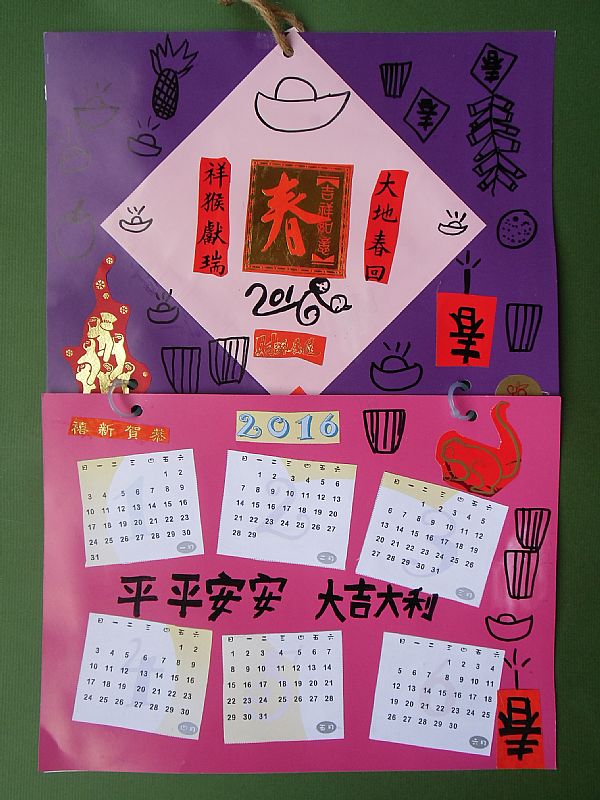 春
春
大地春回
春
【吉祥如意】
祥猴獻瑞
201
春
恭賀新禧
2016
日 一 二 三 四 五 六
1 2
3 4 5 6 7 8 9
10 11 12 13 14 15 16
17 18 19 20 21 22 23
24 25 26 27 28 29 30
31
一月
日 一 二 三 四 五 六
1 2 3 4 5 6
7 8 9 10 11 12 13
14 15 16 17 18 19 20
21 22 23 24 25 26 27
28 29
二月
日 一 二 三 四 五 六
1 2 3 4 5
6 7 8 9 10 11 12
13 14 15 16 17 18 19
20 21 22 23 24 25 26
27 28 29 30 31
三月
平平安安 大吉大利
日 一 二 三 四 五 六
1 2
3 4 5 6 7 8 9
10 11 12 13 14 15 16
17 18 19 20 21 22 23
24 25 26 27 28 29 30
四月
日 一 二 三 四 五 六
1 2 3 4 5 6 7
8 9 10 11 12 13 14
15 16 17 18 19 20 21
22 23 24 25 26 27 28
29 30 31
五月
日 一 二 三 四 五 六
1 2 3 4
5 6 7 8 9 10 11
12 13 14 15 16 17 18
19 20 21 22 23 24 25
26 27 28 29 30
六月
春